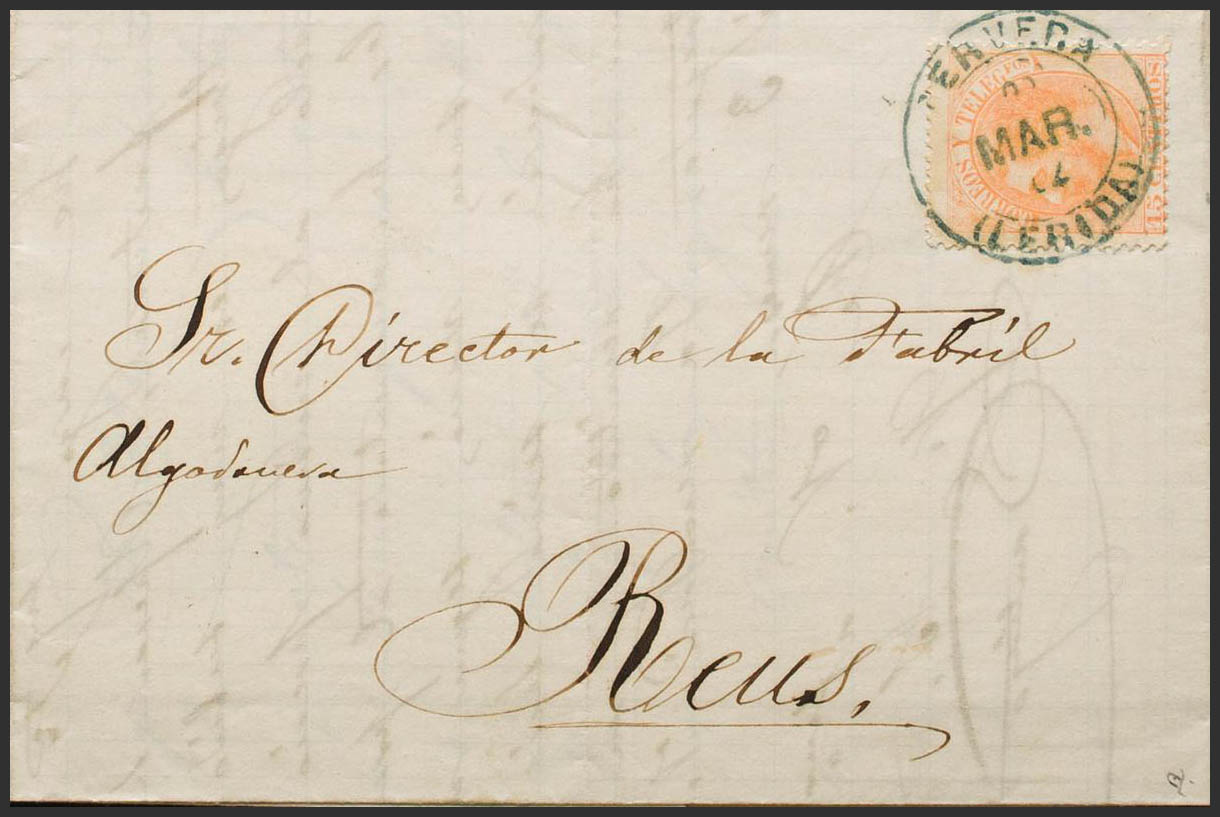 CERVERA
MAR.
(LERIDA)
CORREOS Y TELEGFOS
15 CENTIMOS
Sr. Director de la Fabril
Algodonera
Reus,